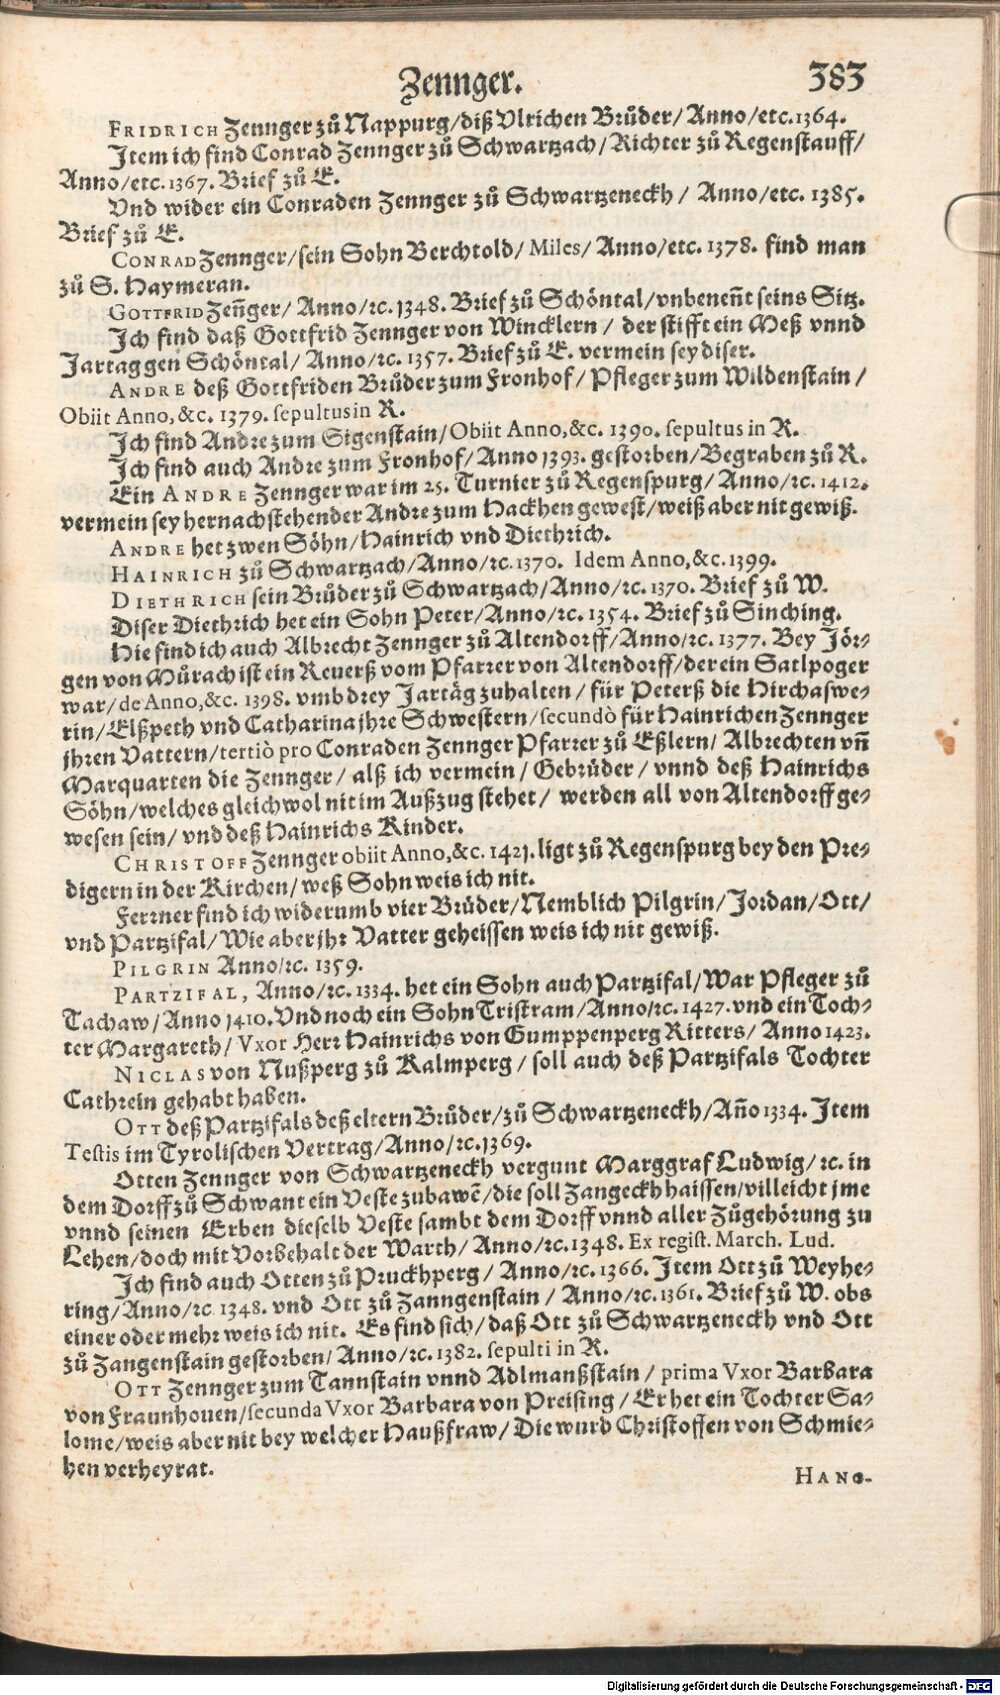 Zennger. 383
FRIDRICH Zennger zů Nappurg/diß Vlrichen Brůder/Anno/etc.1364.
Item ich find Conrad Zennger zů Schwartzach/Richter zů Regenstauff/
Anno/etc.1367. Brief zů E.
Vnd wider ein Conraden Zennger zů Schwartzeneckh/ Anno/etc. 1385.
Brief zů E.
CONRAD Zennger/sein Sohn Berchtold/ Miles/ Anno/etc. 1378. find man
zů S. Haymeran.
GOTTFRID Zeñger/ Anno/ꝛc. 1348. Brief zů Schöntal/vnbeneñt seins Sitz.
Ich find daß Gottfrid Zennger von Wincklern/ der stifft ein Meß vnnd
Jartag gen Schöntal/ Anno/ꝛc. 1357. Brief zů E. vermein sey diser.
ANDRE deß Gottfriden Brůder zum Fronhof/ Pfleger zum Wildenstain/
Obiit Anno,&c. 1379. sepultus in R.
Ich find Andre zum Sigenstain/Obiit Anno,&c. 1390. sepultus in R.
Ich find auch Andre zum Fronhof/Anno 1393. gestorben/Begraben zů R.
Ein ANDRE Zennger war im 25. Turnier zů Regenspurg/Anno/ꝛc. 1412.
vermein sey hernachstehender Andre zum Hackhen gewest/weiß aber nit gewiß.
ANDRE het zwen Söhn/Hainrich vnd Diethrich.
HAINRICH zů Schwartzach/Anno/ꝛc.1370. Idem Anno,&c.1399.
DIETHRICH sein Brůder zů Schwartzach/Anno/ꝛc. 1370. Brief zů W.
Diser Diethrich het ein Sohn Peter/Anno/ꝛc. 1354. Brief zů Sinching.
Hie find ich auch Albrecht Zennger zů Altendorff/Anno/ꝛc. 1377. Bey Jör-
gen von Můrach ist ein Reuerß vom Pfarrer von Altendorff/der ein Satlpoger
war/de Anno,&c. 1398. vmb drey Jartäg zuhalten/ für Peterß die Hirchaswe-
rin/Elßpeth vnd Catharina jhre Schwestern/secundò für Hainrichen Zennger
jhren Vattern/tertiò pro Conraden Zennger Pfarrer zů Eßlern/ Albrechten vñ
Marquarten die Zennger/ alß ich vermein/ Gebrůder/ vnnd deß Hainrichs
Söhn/welches gleichwol nit im Außzug stehet/ werden all von Altendorff ge-
wesen sein/ vnd deß Hainrichs Kinder.
CHRISTOFF Zennger obiit Anno,&c. 1421. ligt zů Regenspurg bey den Pre-
digern in der Kirchen/weß Sohn weis ich nit.
Ferrner find ich widerumb vier Brůder/Nemblich Pilgrin/Jordan/Ott/
vnd Partzifal/Wie aber jhr Vatter geheissen weis ich nit gewiß.
PILGRIN Anno/ꝛc. 1359.
PARTZIFAL, Anno/ꝛc. 1334. het ein Sohn auch Partzifal/War Pfleger zů
Tachaw/Anno 1410. Vnd noch ein Sohn Tristram/Anno/ꝛc. 1427. vnd ein Toch-
ter Margareth/ Vxor Herr Hainrichs von Gumppenperg Ritters/ Anno 1423.
NICLAS von Nußperg zů Kalmperg/ soll auch deß Partzifals Tochter
Cathrein gehabt haben.
OTT deß Partzifals deß eltern Brůder/zů Schwartzeneckh/Año 1334. Item
Testis im Tyrolischen Vertrag/Anno/ꝛc.1369.
Otten Zennger von Schwartzeneckh vergunt Marggraf Ludwig/ꝛc. in
dem Dorff zů Schwant ein Veste zubawẽ/die soll Zangeckh haissen/villeicht jme
vnnd seinen Erben dieselb Veste sambt dem Dorff vnnd aller Zůgehörung zu
Lehen/doch mit Vorbehalt der Warth/ Anno/ꝛc.1348. Ex regist. March. Lud.
Ich find auch Otten zů Pruckhperg/ Anno/ꝛc. 1366. Item Ott zů Weyhe-
ring/Anno/ꝛc 1348. vnd Ott zů Zanngenstain/ Anno/ꝛc. 1361. Brief zů W. obs
einer oder mehr weis ich nit. Es find sich/ daß Ott zů Schwartzeneckh vnd Ott
zů Zangenstain gestorben/ Anno/ꝛc. 1382. sepulti in R.
OTT Zennger zum Tannstain vnnd Adlmanßstain/ prima Vxor Barbara
von Fraunhouen/secunda Vxor Barbara von Preising/ Er het ein Tochter Sa-
lome/weis aber nit bey welcher Haußfraw/ Die wurd Christoffen von Schmie-
hen verheyrat.
HANS-
Digitalisierung gefördert durch die Deutsche Forschungsgemeinschaft - DFG